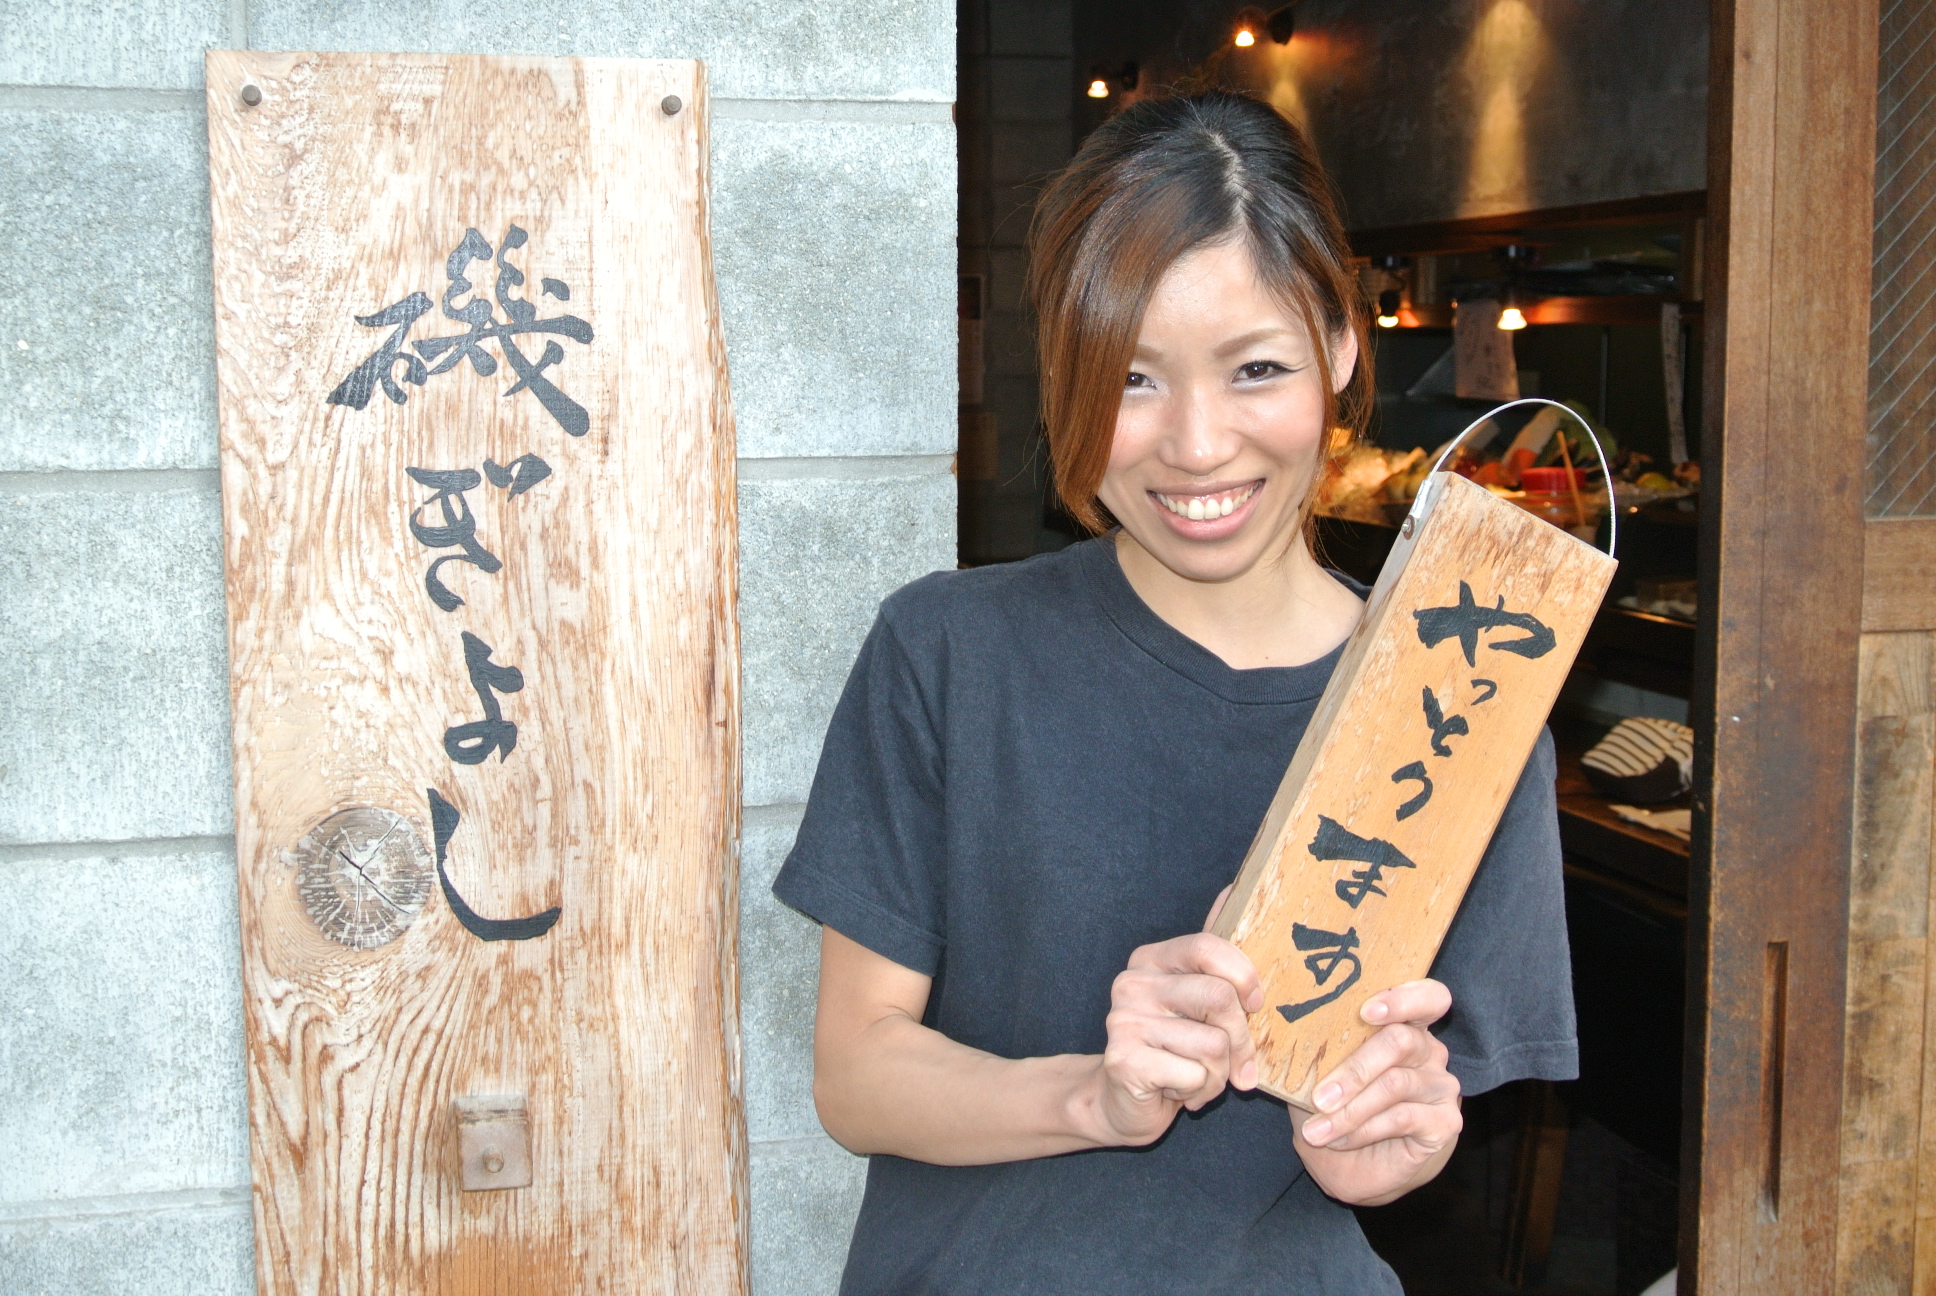 磯ぎよし
やっとります